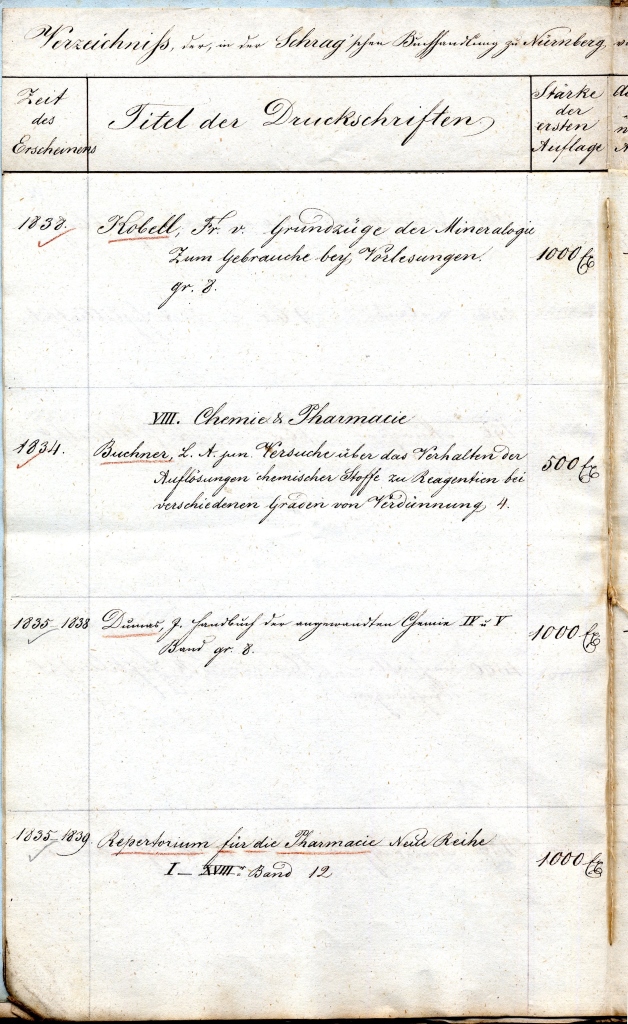 Verzeichniß, der, in der Schrag'schen Buchhandlung zu Nürnberg,
Zeit
des
Erscheinens
Titel der Druckschriften
Stärke
der
ersten
Auflage
1838.
Kobell, Fr. v. Grundzüge der Mineralogie
Zum Gebrauche bey Vorlesungen.
gr. 8.
1000 Ex
VIII. Chemie & Pharmacie
1834.
Buchner, L. A. jun. Versuche über das Verhalten der
Auflösungen chemischer Stoffe zu Reagentien bei
verschiedenen Graden von Verdünnung, 4.
500 Ex
1835-1838
Dumas, J. Handbuch der angewandten Chemie IV u V
Band gr. 8.
1000 Ex
1835-1839
Repertorium für die Pharmacie Neue Reihe
I – XVIIIr. Band 12
1000 Ex